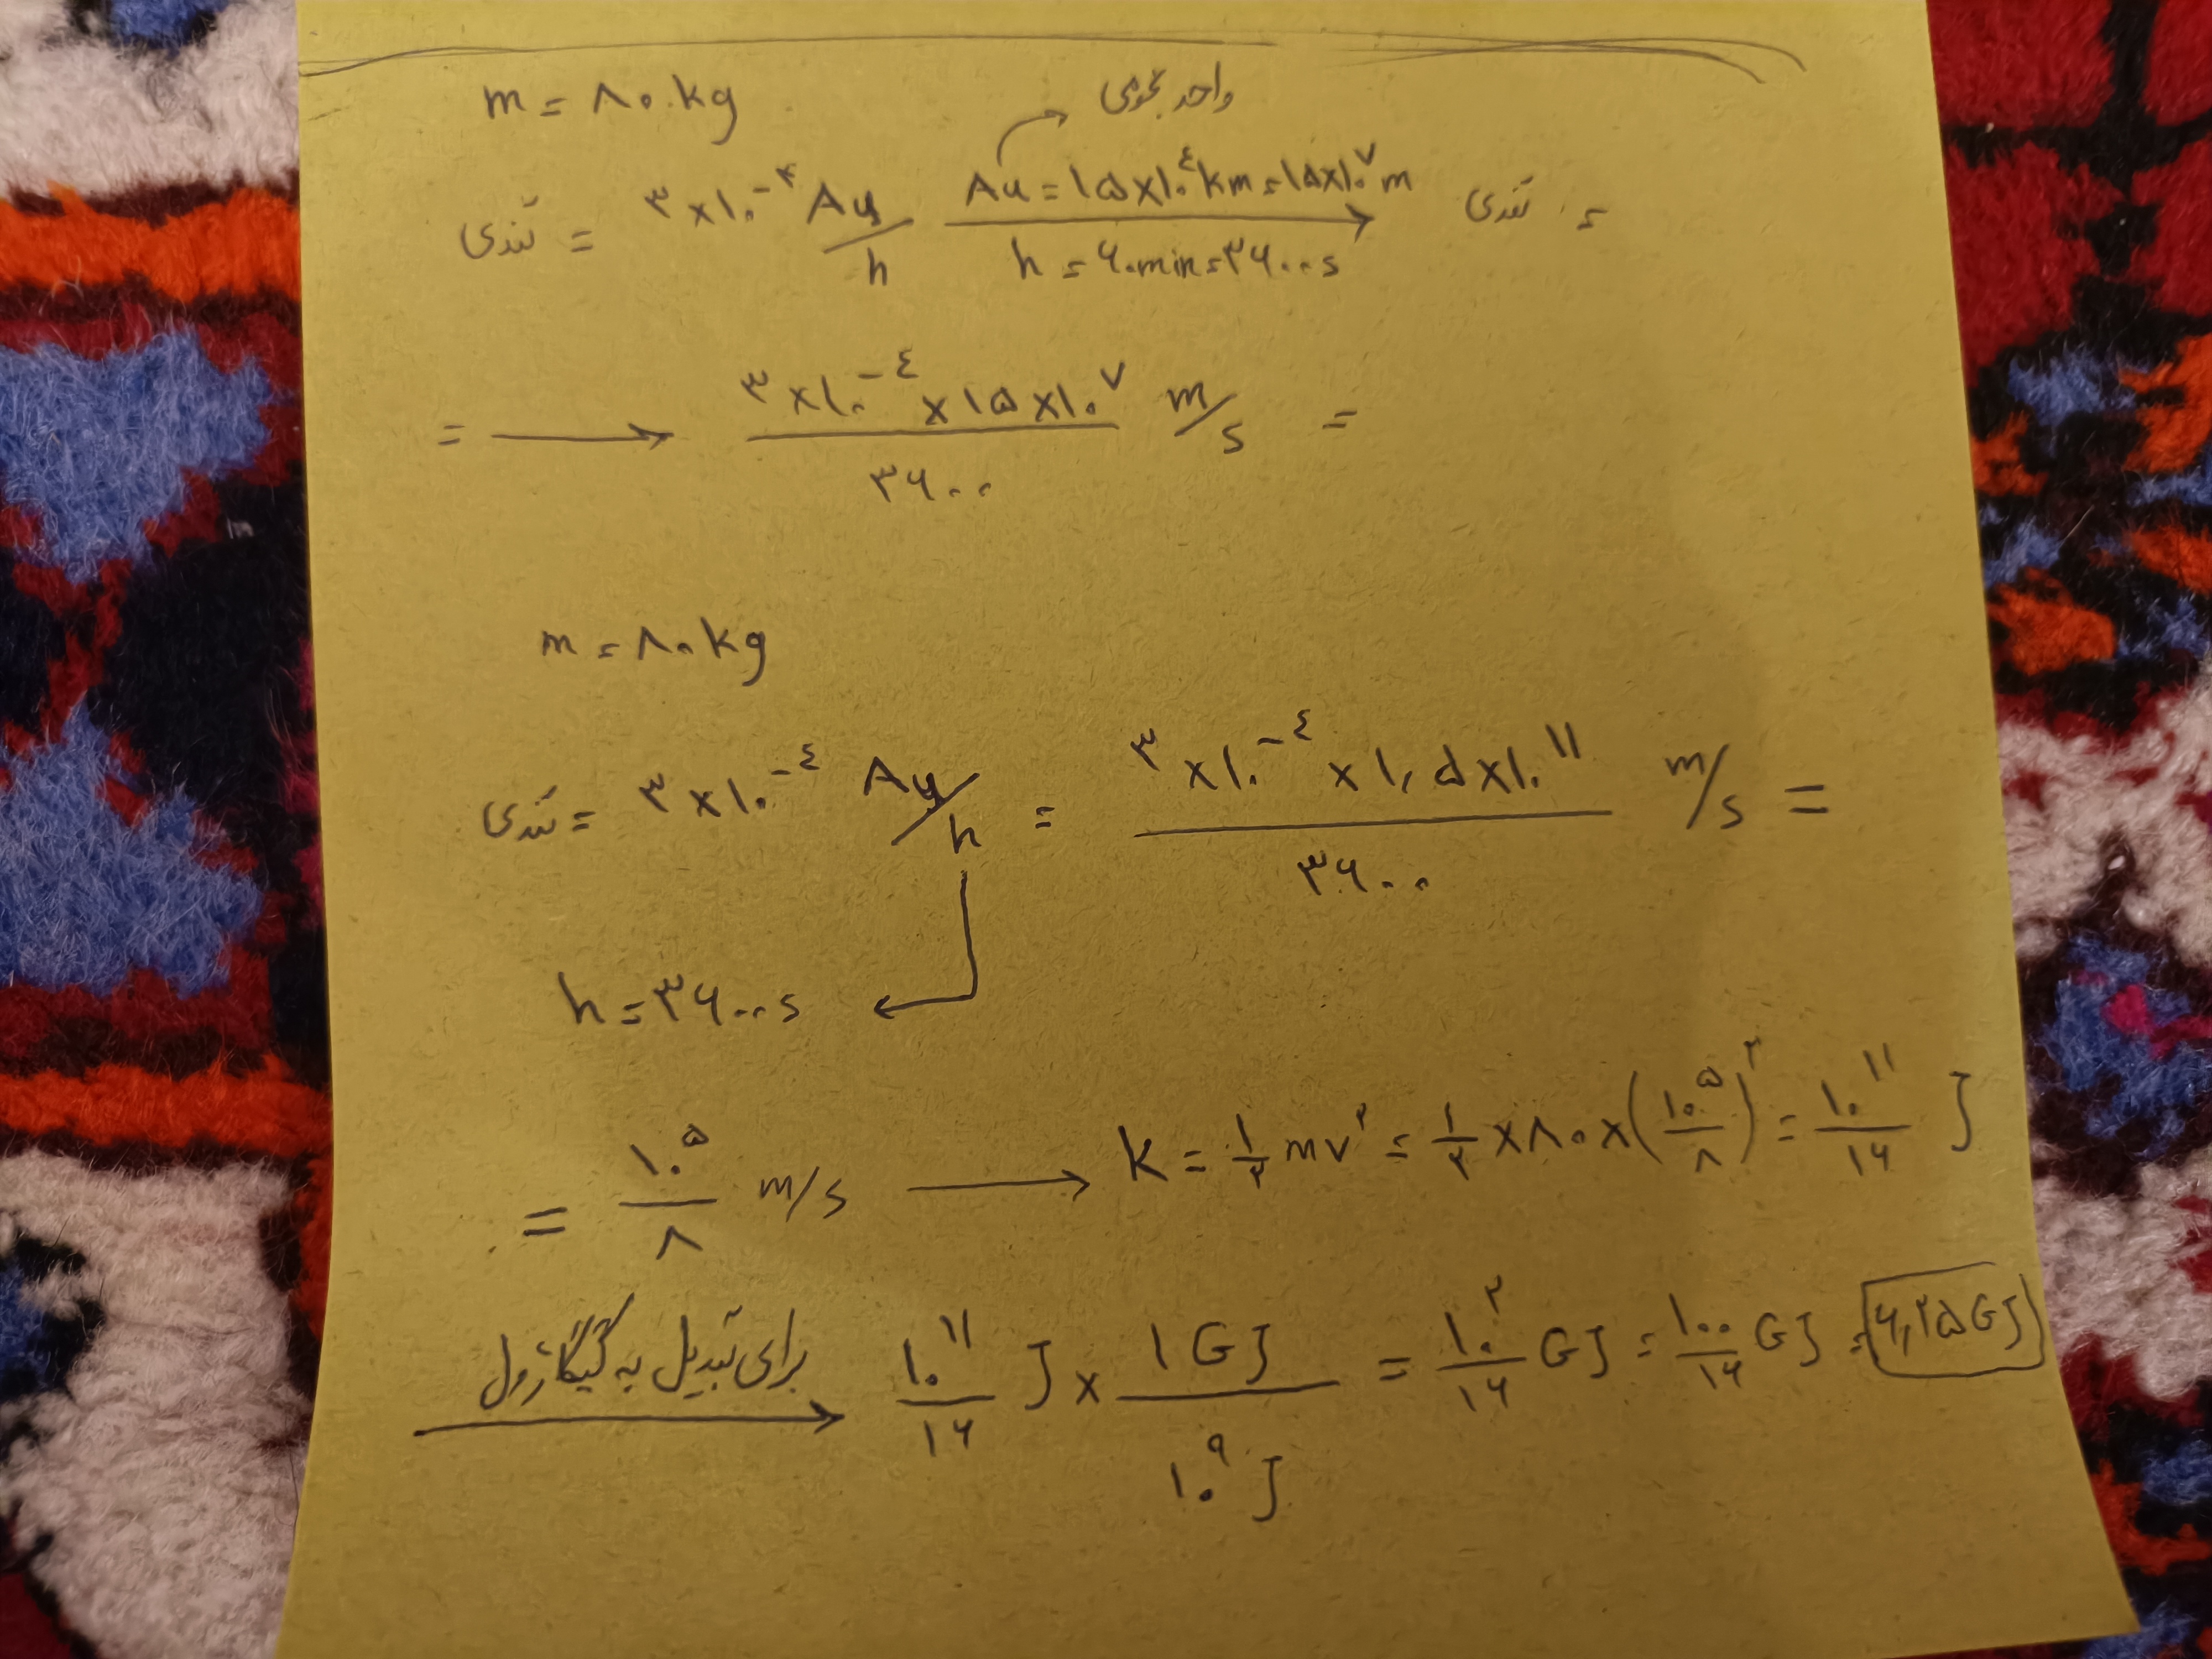 m = ۸۰ kg
واحد نجومی
تندی = ۳×۱۰^-۴ Au/h  Au = ۱۵×۱۰^۴ km = ۱۵×۱۰^۷ m  تندی =
h = ۶۰ min = ۳۶۰۰ s
= → ۳×۱۰^-۴ × ۱۵×۱۰^۷ / ۳۶۰۰ m/s =
m = ۸۰ kg
تندی = ۳×۱۰^-۴ Au/h = ۳×۱۰^-۴ × ۱٫۵×۱۰^۱۱ / ۳۶۰۰ m/s =
h = ۳۶۰۰ s
= ۱۰^۵/۸ m/s → K = ۱/۲ mv^۲ = ۱/۲ × ۸۰ × (۱۰^۵/۸)^۲ = ۱۰^۱۱/۱۶ J
برای تبدیل به گیگاژول → ۱۰^۱۱/۱۶ J × ۱ GJ/۱۰^۹ J = ۱۰^۲/۱۶ GJ = ۱۰۰/۱۶ GJ = ۶٫۲۵ GJ